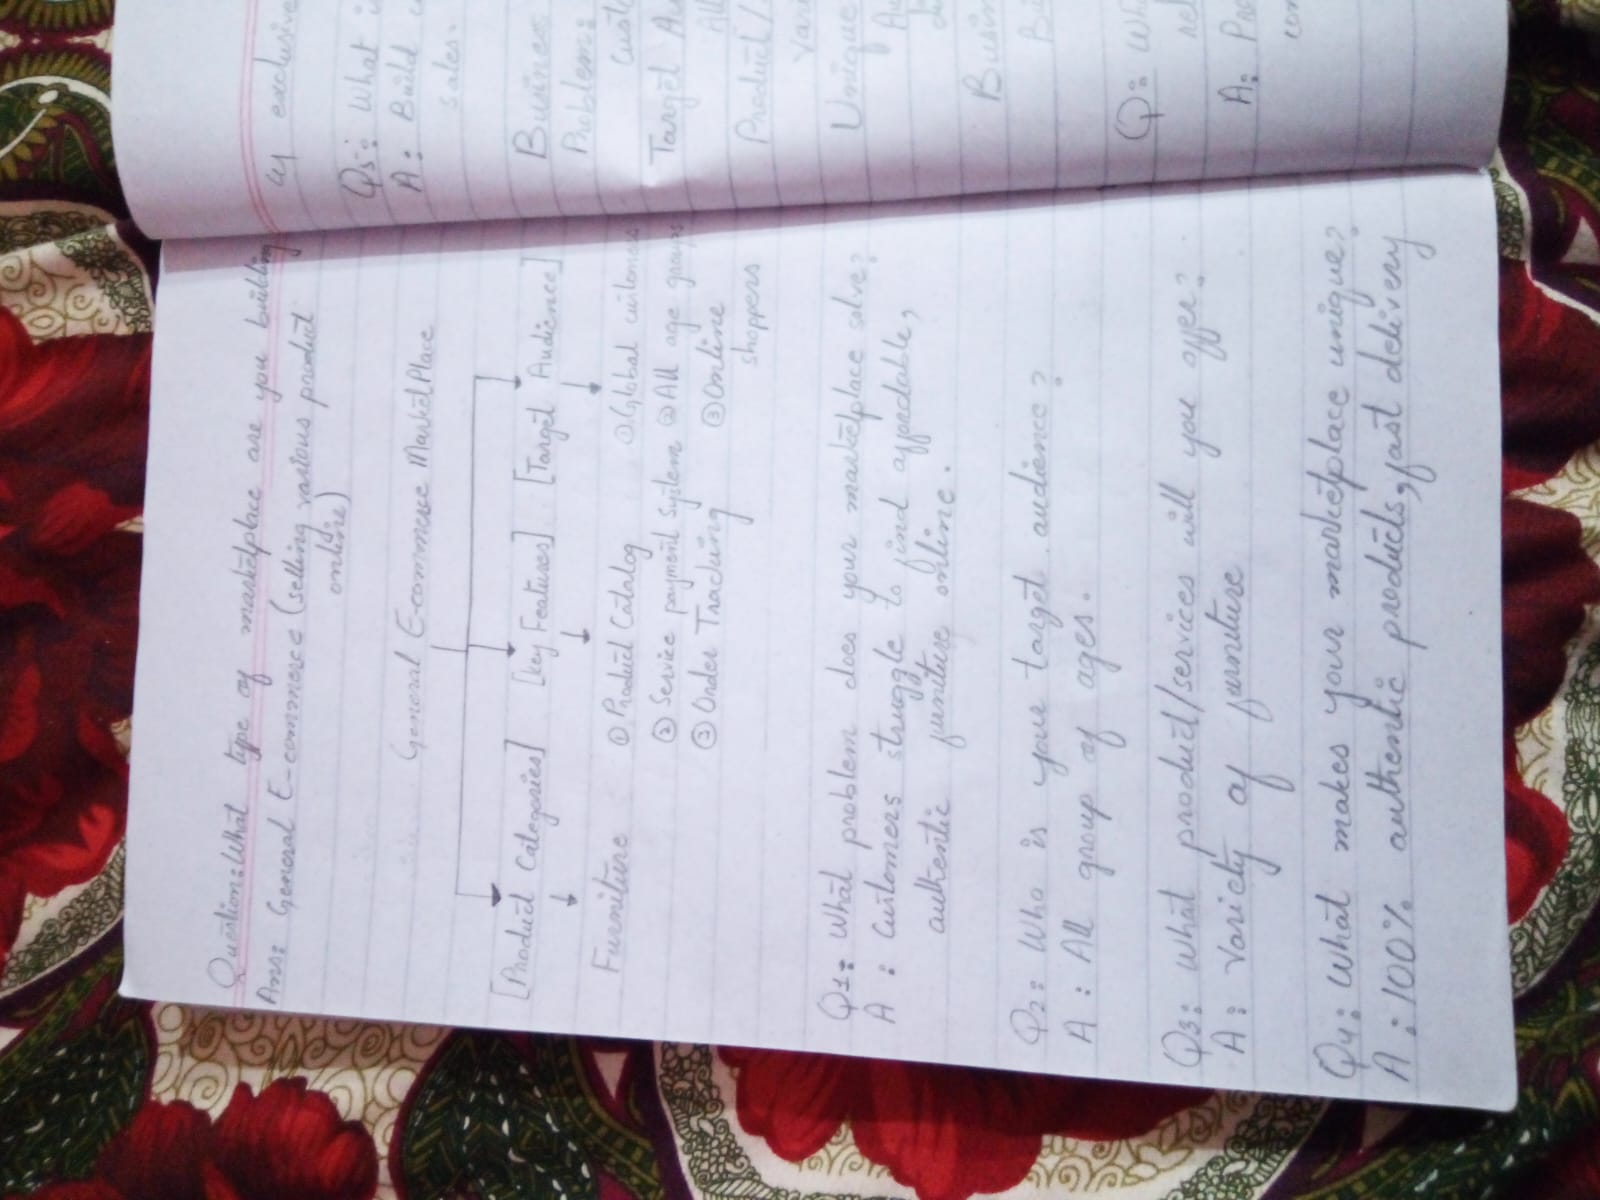 Question: What type of marketplace are you building
Ans: General E-commerce (selling various product
online)
General E-commerce MarketPlace
[Product Categories] [key Features] [Target Audience]
Furniture ① Product Catalog ① Global customers
② Service payment system ② All age groups
③ Order Tracking ③ Online
shoppers
Q1: What problem does your marketplace solve?
A: Customers struggle to find affordable,
authentic furniture online.
Q2: Who is your target audience?
A: All group of ages.
Q3: What product/services will you offer?
A: Variety of furniture
Q4: What makes your marketplace unique?
A: 100% authentic products, fast delivery
exclusive
Q5: What
A: Build
sales.
Business
Problem:
Target
All
Product/
Unique
Busin
Q:
A: